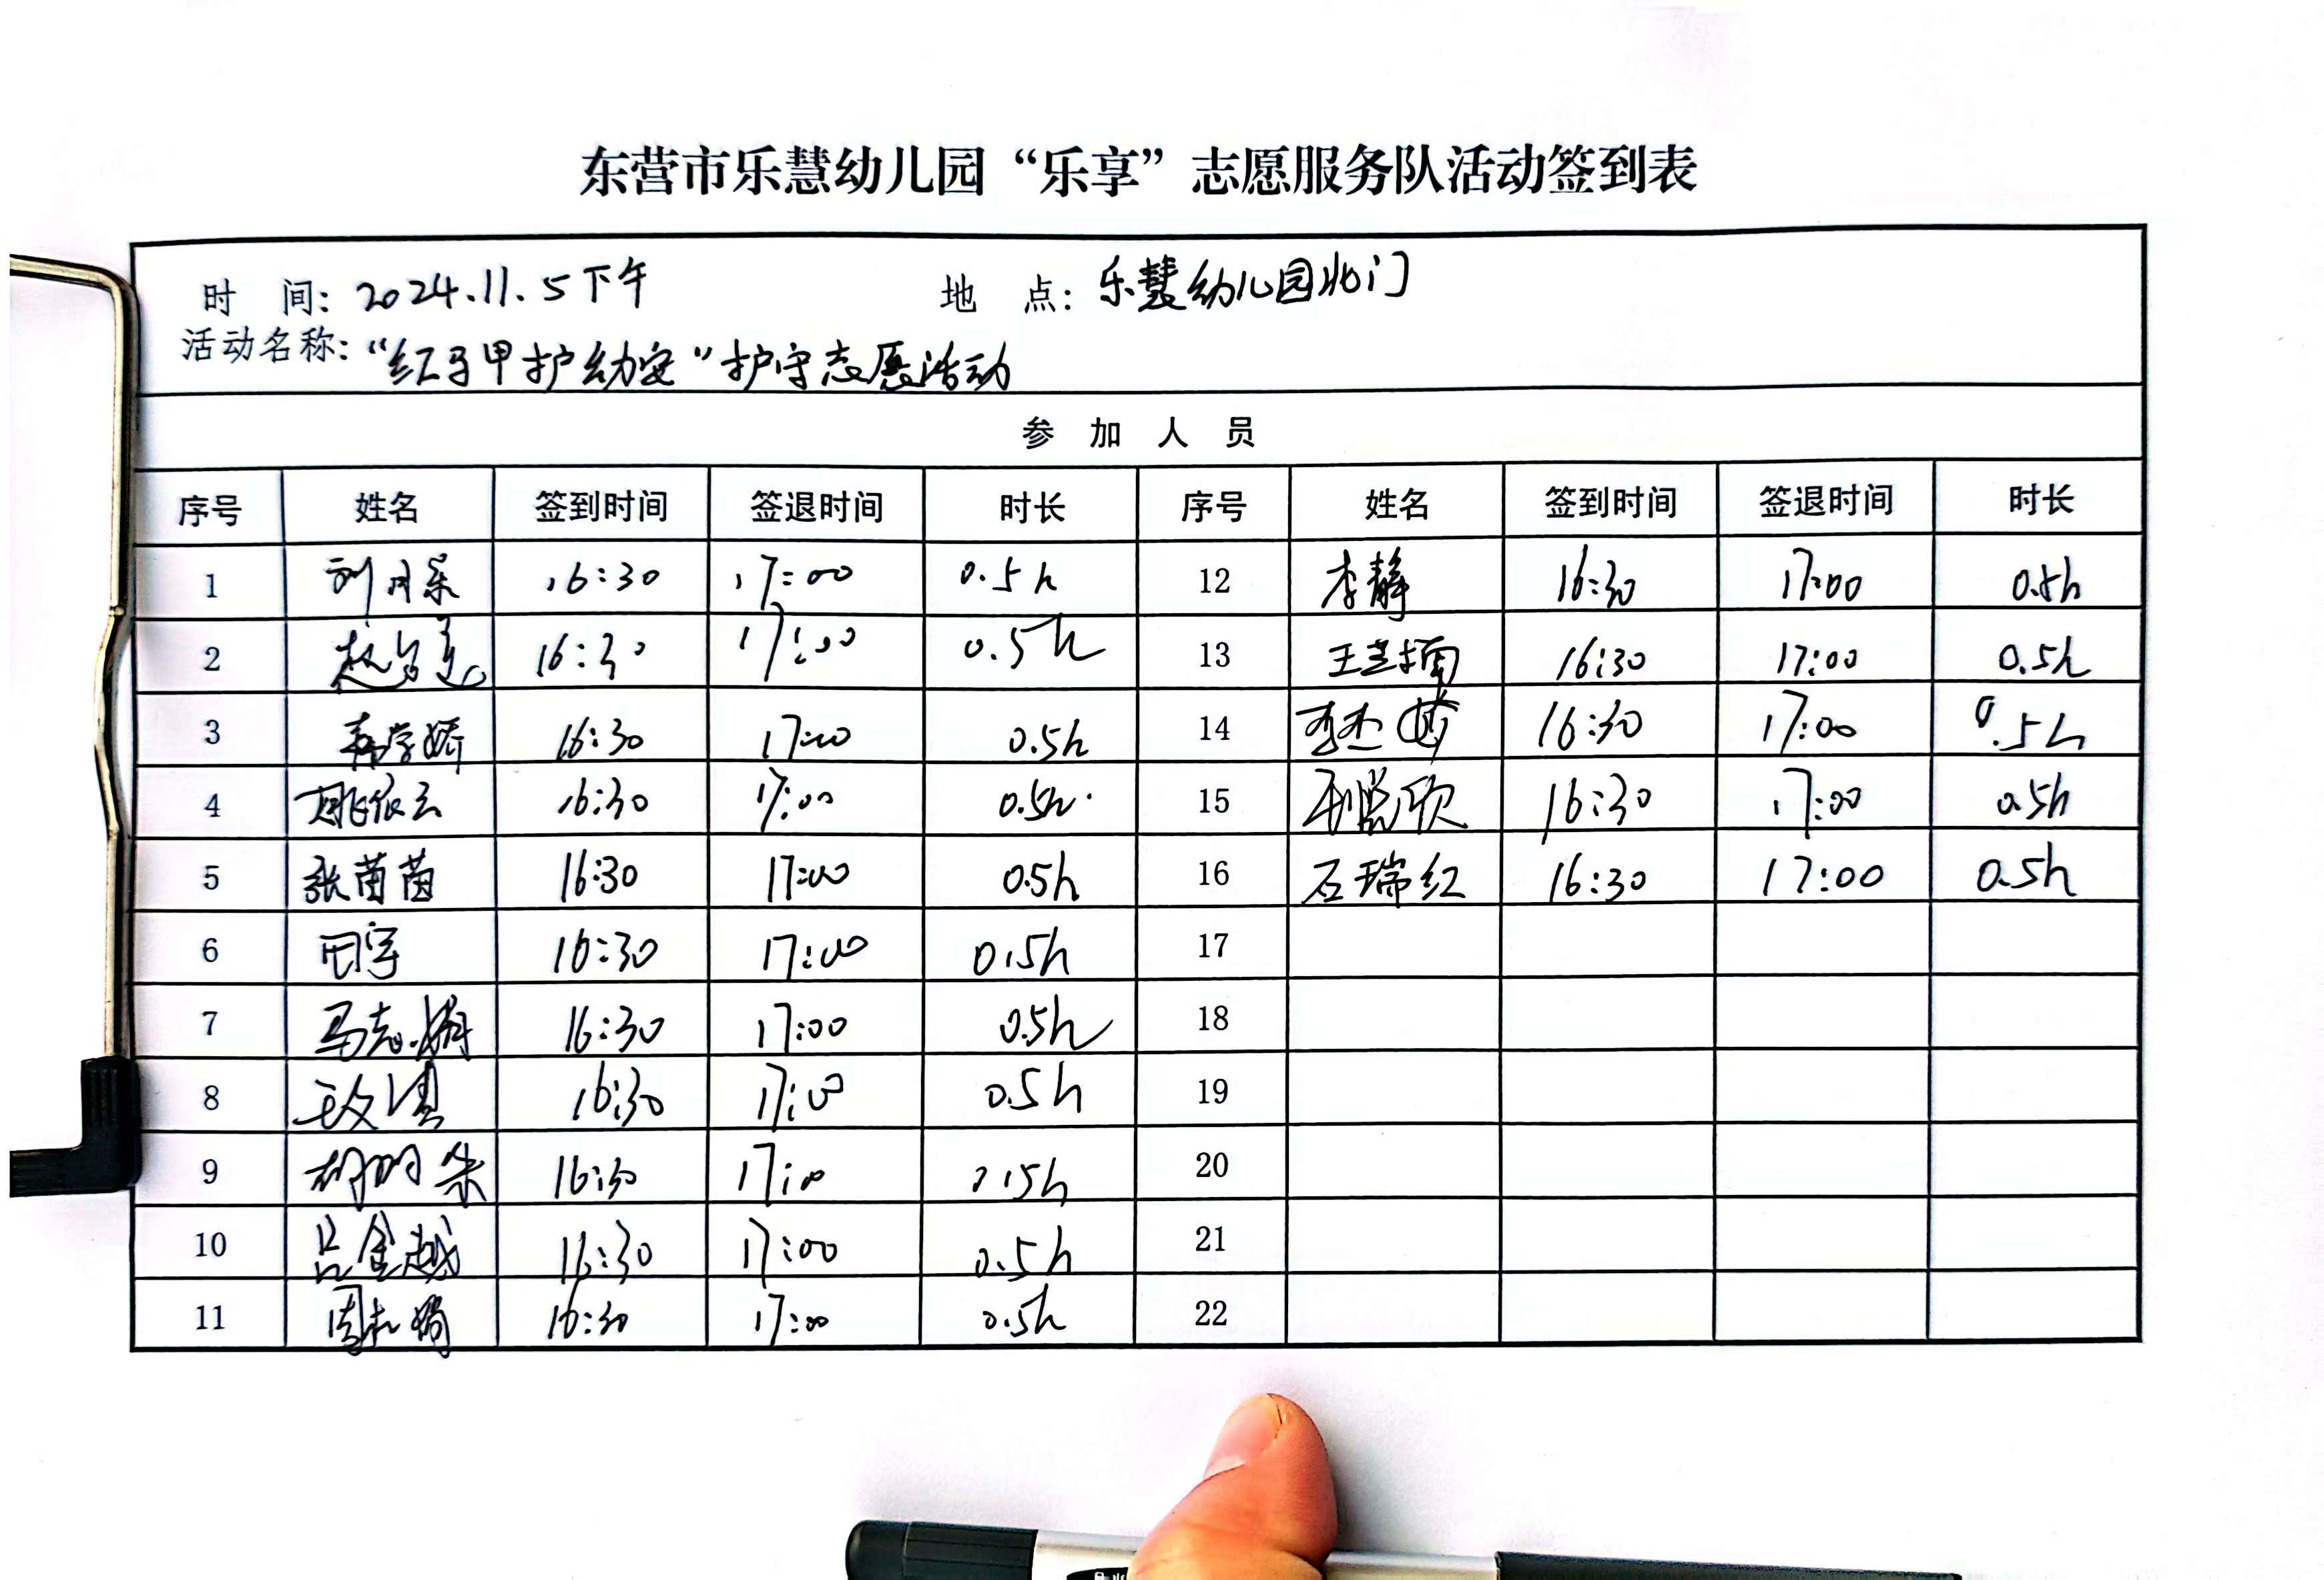 东营市乐慧幼儿园“乐享”志愿服务队活动签到表
时 间: 2024.11.5下午 地 点: 乐慧幼儿园北门
活动名称: “红马甲护幼安”护守志愿活动
参 加 人 员
序号 姓名 签到时间 签退时间 时长 序号 姓名 签到时间 签退时间 时长
1 16:30 17:00 0.5h 12 李静 16:30 17:00 0.5h
2 16:30 17:00 0.5h 13 王芝楠 16:30 17:00 0.5h
3 16:30 17:00 0.5h 14 16:30 17:00 0.5h
4 姚依云 16:30 17:00 0.5h 15 16:30 17:00 0.5h
5 张茵茵 16:30 17:00 0.5h 16 石瑞红 16:30 17:00 0.5h
6 田宇 16:30 17:00 0.5h 17
7 马志娟 16:30 17:00 0.5h 18
8 16:30 17:00 0.5h 19
9 胡明朱 16:30 17:00 0.5h 20
10 吕金越 16:30 17:00 0.5h 21
11 16:30 17:00 0.5h 22